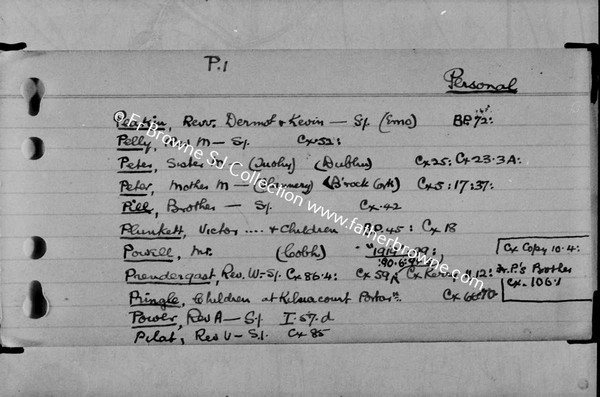 P.1
Personal
Revv. Dermot & Kevin — S.J. (Emo) BP.72:
Pelly, M — S.J. Cx.52:
Peter, Sister M (Tuohy) (Dublin) Cx25: Cx23.3A:
Peter, Mother M — (B'rock Cork) Cx5:17:37:
Pill, Brother — S.J. Cx.42
Plunkett, Victor .... & Children BP.45: Cx 18
Powell, Mr. (Cobh)
Cx Copy 10.4:
Prendergast, Rev. W. — S.J. Cx86.4: Cx59A Cx "12: Fr. P.'s Brother
Cx. 106.1
Pringle, Children at Kilnacourt Portar.n Cx
Power, Rev A — S.J. I.57.d
Pilat, Rev V — S.J. Cx 85
© Fr Browne SJ Collection
www.fatherbrowne.com